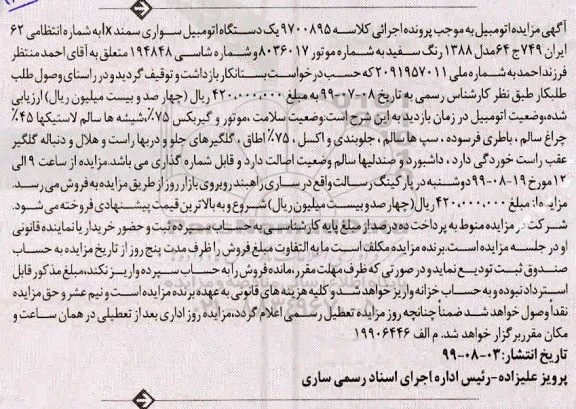 آگهی مزایده اتومبیل به موجب پرونده اجرائی کلاسه ۹۷۰۰۸۹۵ یک دستگاه اتومبیل سواری سمند lx به شماره انتظامی ۶۲
ایران ۷۴۹ج ۶۴ مدل ۱۳۸۸ رنگ سفید به شماره موتور ۸۰۳۶۰۱۷ و شماره شاسی ۱۹۴۸۴۸ متعلق به آقای احمد منتظر
فرزند احمد به شماره ملی ۲۰۹۱۹۵۷۰۱۱ که حسب درخواست بستانکار بازداشت و توقیف گردید و در راستای وصول طلب
طلبکار طبق نظر کارشناس رسمی به تاریخ ۰۸-۰۷-۹۹ به مبلغ ۴۲۰,۰۰۰,۰۰۰ ریال (چهار صد و بیست میلیون ریال) ارزیابی
شده، وضعیت اتومبیل در زمان بازدید به این شرح است: وضعیت سلامت ،موتور و گیربکس ۷۵٪،شیشه ها سالم لاستیکها ۴۵٪
چراغ سالم ، باطری فرسوده ، سپ ها سالم ، جلوبندی و اکسل ، ۷۵٪ اطاق ، گلگیرهای جلو و دربها راست و هلال و دنباله گلگیر
عقب راست خوردگی دارد ، داشبورد و صندلیها سالم وضعیت اصالت دارد و قابل شماره گذاری می باشد.مزایده از ساعت ۹ الی
۱۲ مورخ ۱۹-۰۸-۹۹ دوشنبه در پارکینگ رسالت واقع در ساری راهبند روبروی بازار روز از طریق مزایده به فروش می رسد.
مزایده از مبلغ ۴۲۰,۰۰۰,۰۰۰ ریال(چهار صد و بیست میلیون ریال) شروع و به بالاترین قیمت پیشنهادی فروخته می شود.
شرکت در مزایده منوط به پرداخت ده درصد از مبلغ پایه کارشناسی به حساب سپرده ثبت و حضور خریدار یا نماینده قانونی
او در جلسه مزایده است.برنده مزایده مکلف است ما به التفاوت مبلغ فروش را ظرف مدت پنج روز از تاریخ مزایده به حساب
صندوق ثبت تودیع نماید و در صورتی که ظرف مهلت مقرر،مانده فروش را به حساب سپرده واریز نکند،مبلغ مذکور قابل
استرداد نبوده و به حساب خزانه واریز خواهد شد و کلیه هزینه های قانونی به عهده برنده مزایده است و نیم عشر و حق مزایده
نقداً وصول خواهد شد ضمناً چنانچه روز مزایده تعطیل رسمی اعلام گردد،مزایده روز اداری بعد از تعطیلی در همان ساعت و
مکان مقرر برگزار خواهد شد. م الف ۱۹۹۰۶۴۴۶
تاریخ انتشار: ۰۳-۰۸-۹۹
پرویز علیزاده-رئیس اداره اجرای اسناد رسمی ساری